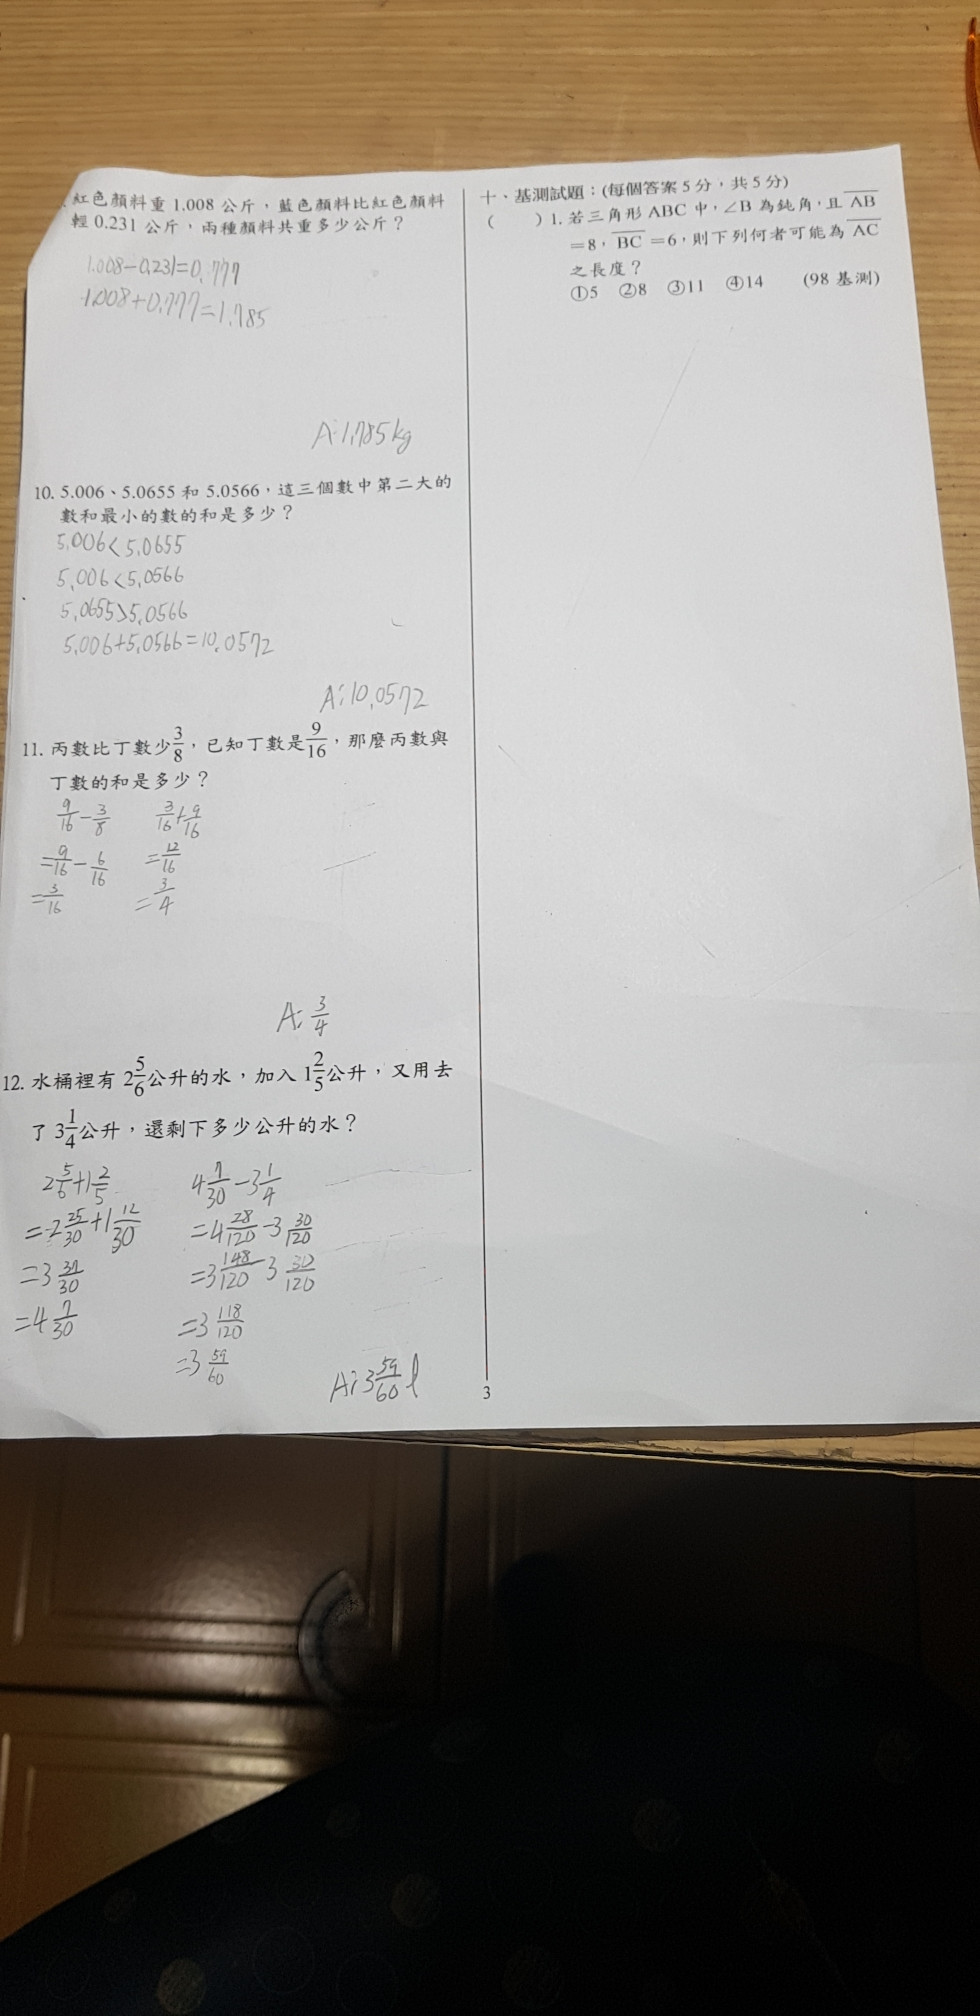 紅色顏料重 1.008 公斤，藍色顏料比紅色顏料
輕 0.231 公斤，兩種顏料共重多少公斤？
1.008-0.231=0.777
1.008+0.777=1.785
A:1.785kg
10. 5.006、5.0655 和 5.0566，這三個數中第二大的
數和最小的數的和是多少？
5.006<5.0655
5.006<5.0566
5.0655>5.0566
5.006+5.0566=10.0572
A:10.0572
11. 丙數比丁數少3/8，已知丁數是9/16，那麼丙數與
丁數的和是多少？
9/16-3/8
=9/16-6/16
=3/16
3/16+9/16
=12/16
=3/4
A:3/4
12. 水桶裡有 2 5/6公升的水，加入 1 2/5公升，又用去
了 3 1/4公升，還剩下多少公升的水？
2 5/6+1 2/5
=2 25/30+1 12/30
=3 37/30
=4 7/30
4 7/30-3 1/4
=4 28/120-3 30/120
=3 148/120-3 30/120
=3 118/120
=3 59/60
A:3 59/60 l
十、基測試題：(每個答案 5 分，共 5 分)
( ) 1. 若三角形 ABC 中，∠B 為鈍角，且 AB
=8，BC=6，則下列何者可能為 AC
之長度？
①5 ②8 ③11 ④14 (98 基測)
3